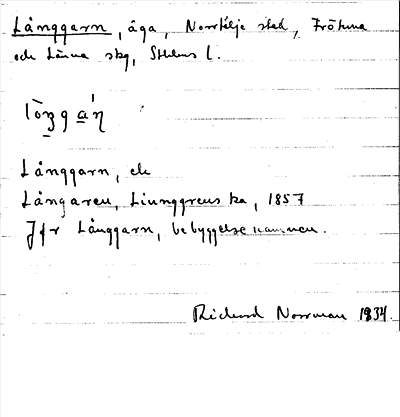 Långgarn, äga, Norrtälje stad, Frötuna
och Länna skg, Sthlms l.
Långgarn, ek
Långaren, Ljunggrens ka, 1857
Jfr Långgarn, bebyggelsenamnen.
Richard Norrman 1934.